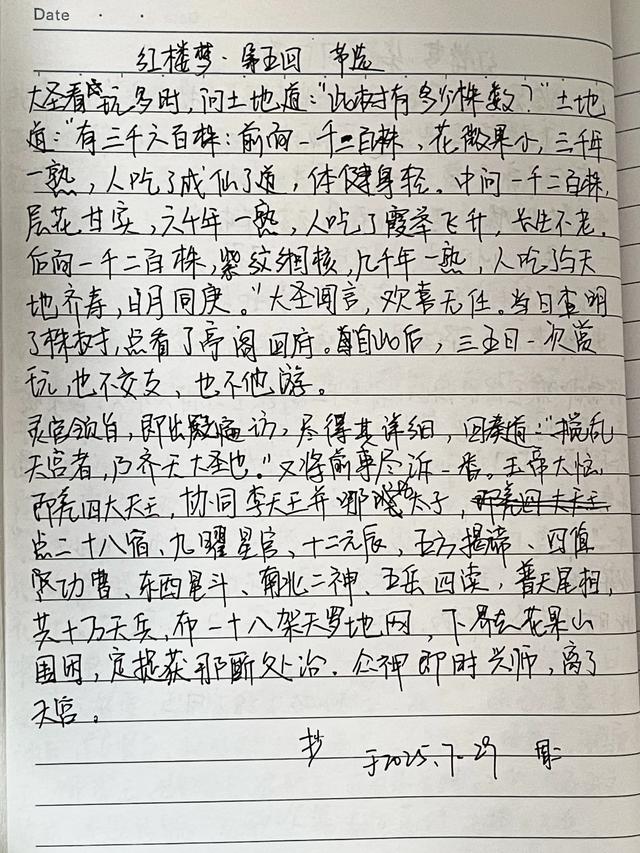 Date
红楼梦·第五回 节选
大圣看玩多时,问土地道:"此树有多少株数?"土地
道:"有三千六百株:前面一千二百株,花微果小,三千年
一熟,人吃了成仙了道,体健身轻。中间一千二百株,
层花甘实,六千年一熟,人吃了霞举飞升,长生不老。
后面一千二百株,紫纹缃核,九千年一熟,人吃了与天
地齐寿,日月同庚。"大圣闻言,欢喜无任。当日查明
了株树,点看了亭阁回府。自此后,三五日一次赏
玩,也不交友,也不他游。
灵官领旨,即出殿遍访,尽得其详细,回奏道:"搅乱
天宫者,乃齐天大圣也。"又将前事尽诉一番。玉帝大恼,
即差四大天王,协同李天王并哪吒太子,
点二十八宿、九曜星官、十二元辰、五方揭谛、四值
功曹、东西星斗、南北二神、五岳四渎,普天星相,
共十万天兵,布一十八架天罗地网,下界去花果山
围困,定捉获那厮处治。众神即时兴师,离了
天宫。
抄
于2025.7.29